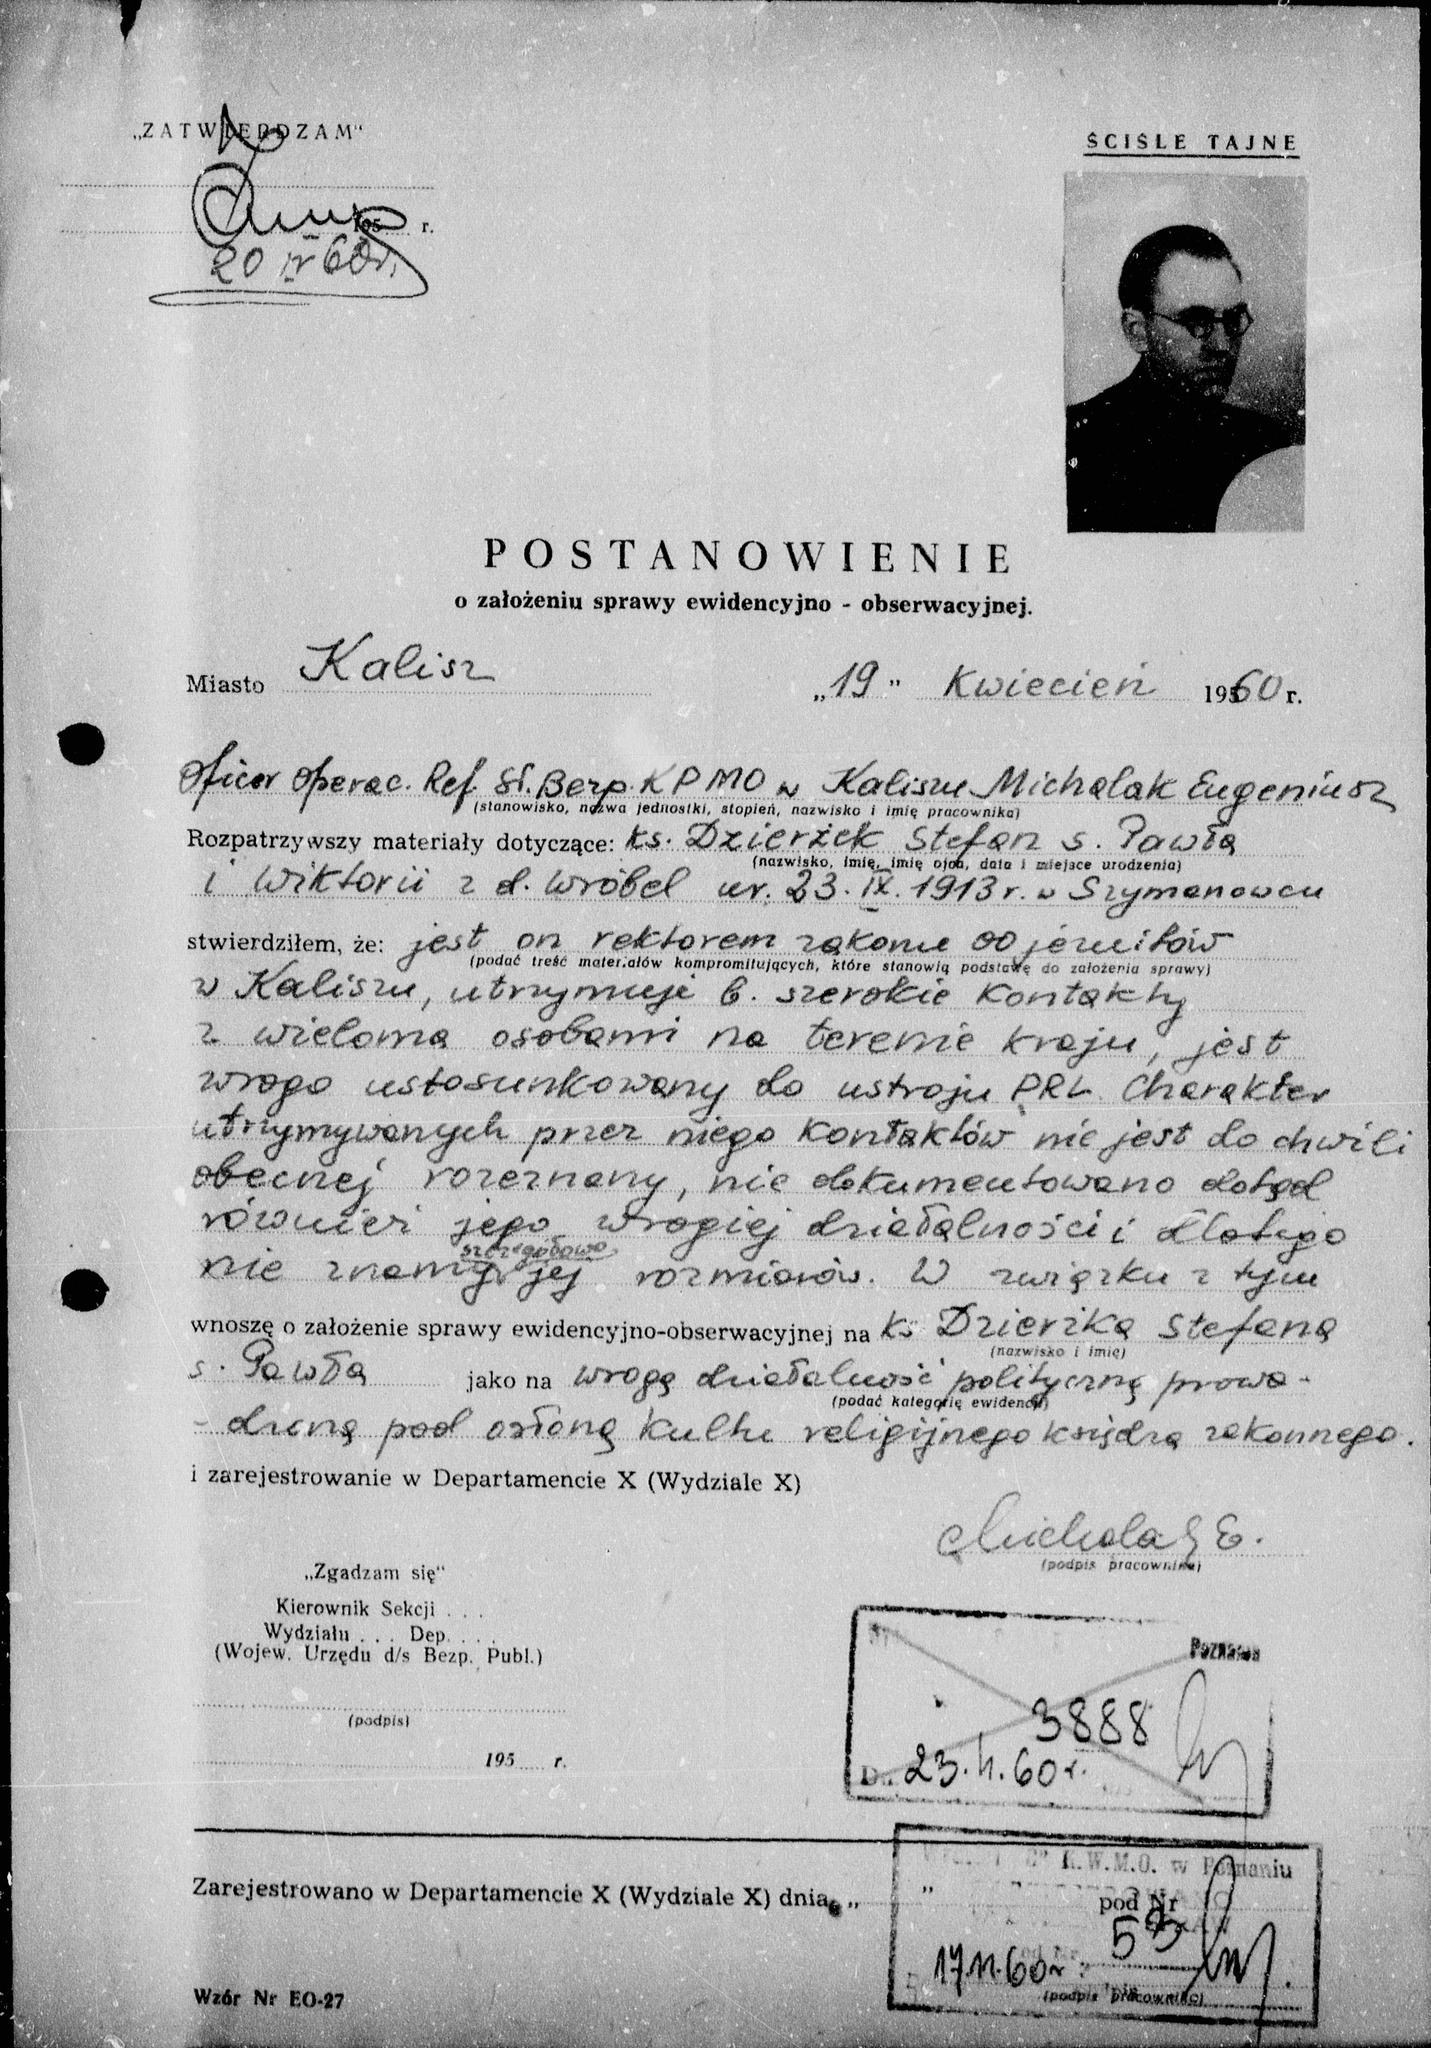 „ZATWIERDZAM"
ŚCIŚLE TAJNE
195 r.
20 IV 60r.
POSTANOWIENIE
o założeniu sprawy ewidencyjno - obserwacyjnej.
Miasto Kalisz „19" Kwiecień 1960 r.
Oficer Operac. Ref. Sł. Bezp. KPMO w Kaliszu Michalak Eugeniusz
(stanowisko, nazwa jednostki, stopień, nazwisko i imię pracownika)
Rozpatrzywszy materiały dotyczące: ks. Dzierżek Stefan s. Pawła
(nazwisko, imię, imię ojca, data i miejsce urodzenia)
i Wiktorii z d. Wróbel ur. 23. IX. 1913 r. w Szymanowcu
stwierdziłem, że: jest on rektorem zakonu OO jezuitów
(podać treść materiałów kompromitujących, które stanowią podstawę do założenia sprawy)
w Kaliszu, utrzymuje b. szerokie kontakty
z wieloma osobami na terenie kraju, jest
wrogo ustosunkowany do ustroju PRL. Charakter
utrzymywanych przez niego kontaktów nie jest do chwili
obecnej rozeznany, nie dokumentowano dotąd
również jego wrogiej działalności i dlatego
nie znamy szczegółowo jej rozmiarów. W związku z tym
wnoszę o założenie sprawy ewidencyjno-obserwacyjnej na ks Dzierżka Stefana
(nazwisko i imię)
s. Pawła jako na wrogą działalność polityczną prowa-
(podać kategorię ewidencji)
-dzoną pod osłoną kultu religijnego księdza zakonnego.
i zarejestrowanie w Departamencie X (Wydziale X)
Michalak E.
(podpis pracownika)
„Zgadzam się"
Kierownik Sekcji . . .
Wydziału . . . Dep. . . .
(Wojew. Urzędu d/s Bezp. Publ.)
(podpis)
195 r.
Poznaniu
3888
Dn. 23.4.60r.
Zarejestrowano w Departamencie X (Wydziale X) dnia „ "
K.W.M.O. w Poznaniu
pod Nr
53
17.11.60r.
(podpis pracownika)
Wzór Nr EO-27